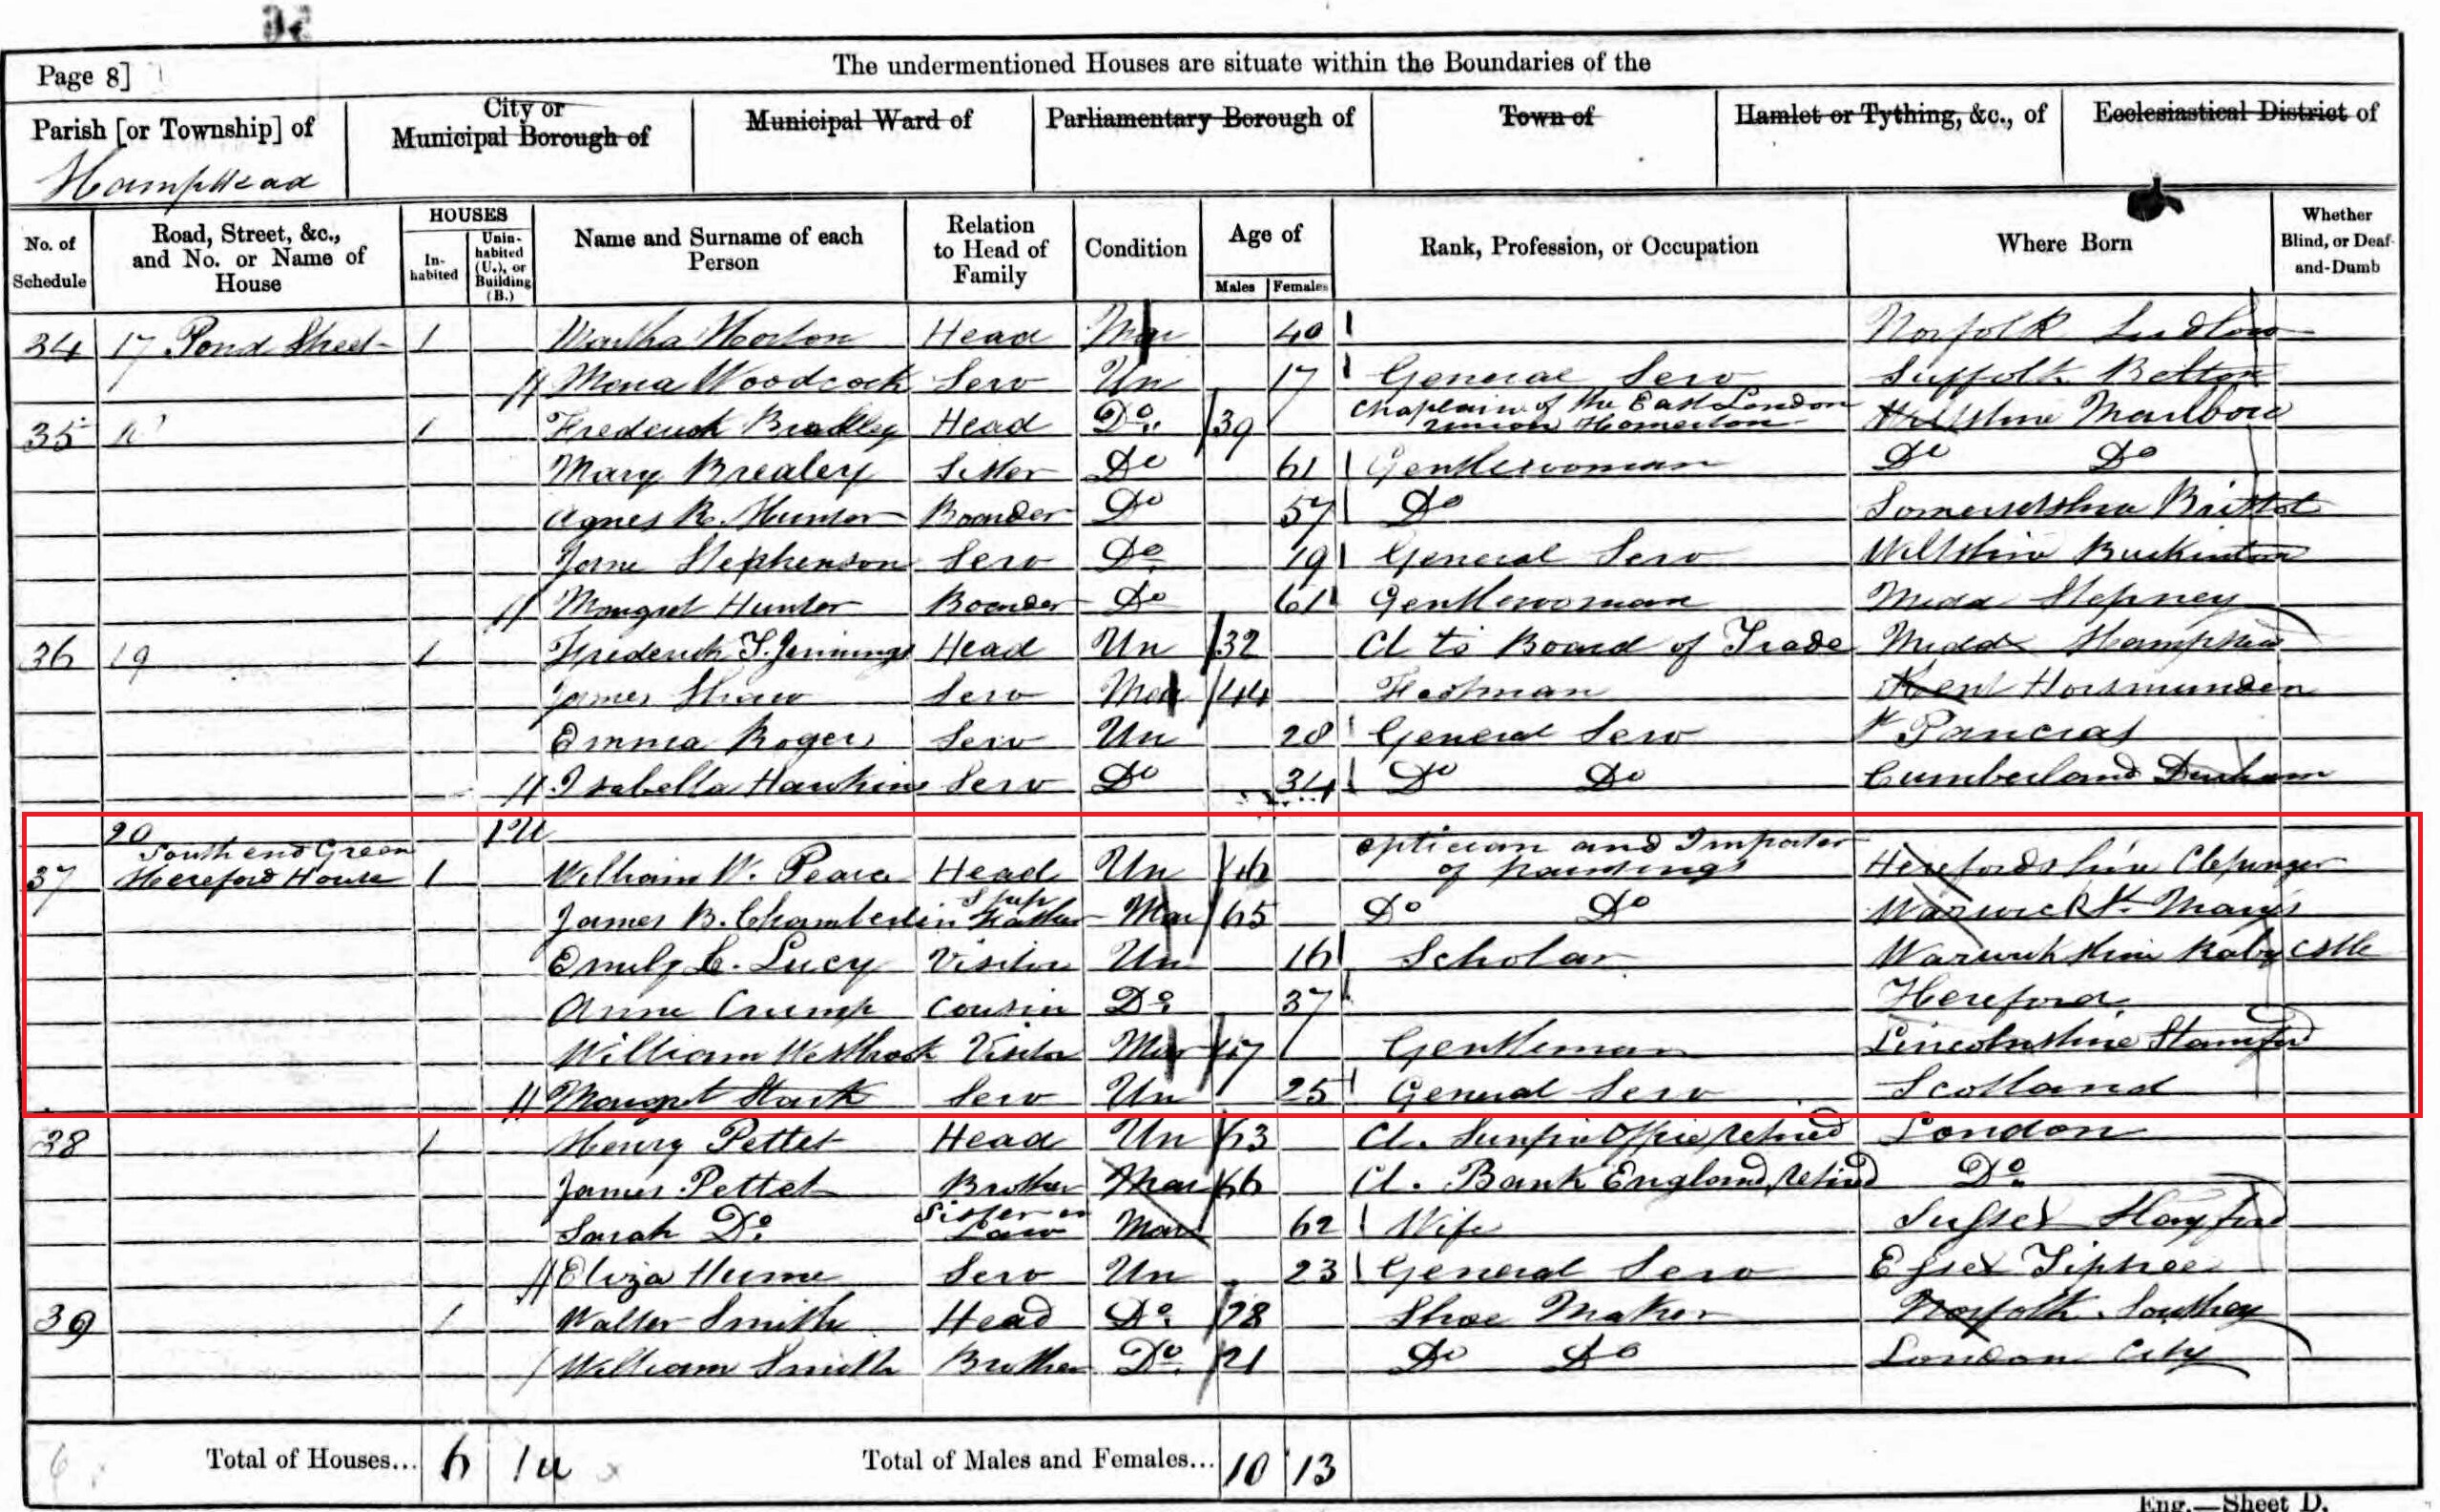 Page 8]
The undermentioned Houses are situate within the Boundaries of the
Parish [or Township] of
Hampstead
City or
Municipal Borough of
Municipal Ward of
Parliamentary Borough of
Town of
Hamlet or Tything, &c., of
Ecclesiastical District of
No. of Schedule
Road, Street, &c., and No. or Name of House
HOUSES
In-habited
Unin-habited (U.), or Building (B.)
Name and Surname of each Person
Relation to Head of Family
Condition
Age of
Males
Females
Rank, Profession, or Occupation
Where Born
Whether Blind, or Deaf-and-Dumb
34 17 Pond Street 1 Martha Horton Head Mar 40 Norfolk
Woodcock Serv Un 17 General Serv Suffolk Belton
35 1 Frederick Head Do 39 Chaplain of the East London Union Homerton Wiltshire Marlboro
Mary Brealey Sister Do 61 Gentlewoman Do Do
Agnes R. Hunter Boarder Do 57 Do Somersetshire Bristol
Jane Stephenson Serv Do 19 General Serv Wiltshire
Margret Hunter Boarder Do 61 Gentlewoman Midd Stepney
36 19 1 Frederick Jennings Head Un 32 Cl to Board of Trade Midd
James Shaw Serv Mar 44 Kent Horsmunden
Emma Rogers Serv Un 28 General Serv St Pancras
Isabella Hawkins Serv Do 34 Do Do Cumberland
20 1 U
37 South end Green Hereford House 1 William W. Pearce Head Un 46 Optician and Importer of paintings Herefordshire
James B. Chamberlin Step Father Mar 65 Do Do Warwick St Marys
Emily Lucy Visitor Un 16 Scholar Warwickshire
Anne Crump Cousin Do 37 Hereford
William Visitor Mar Gentleman Lincolnshire Stamford
Margret Stark Serv Un 25 General Serv Scotland
38 1 Henry Pettet Head Un 63 Cl. retired London
James Pettet Brother Mar 66 Cl. Bank England, retired Do
Sarah Do Sister in Law Mar 62 Wife
Eliza Hume Serv Un 23 General Serv Essex Tiptree
39 1 Walter Smith Head Do 28 Shoe Maker Norfolk
William Smith Brother Do 21 Do Do London City
Total of Houses... 6 1 u
Total of Males and Females... 10 13
Eng.—Sheet D.